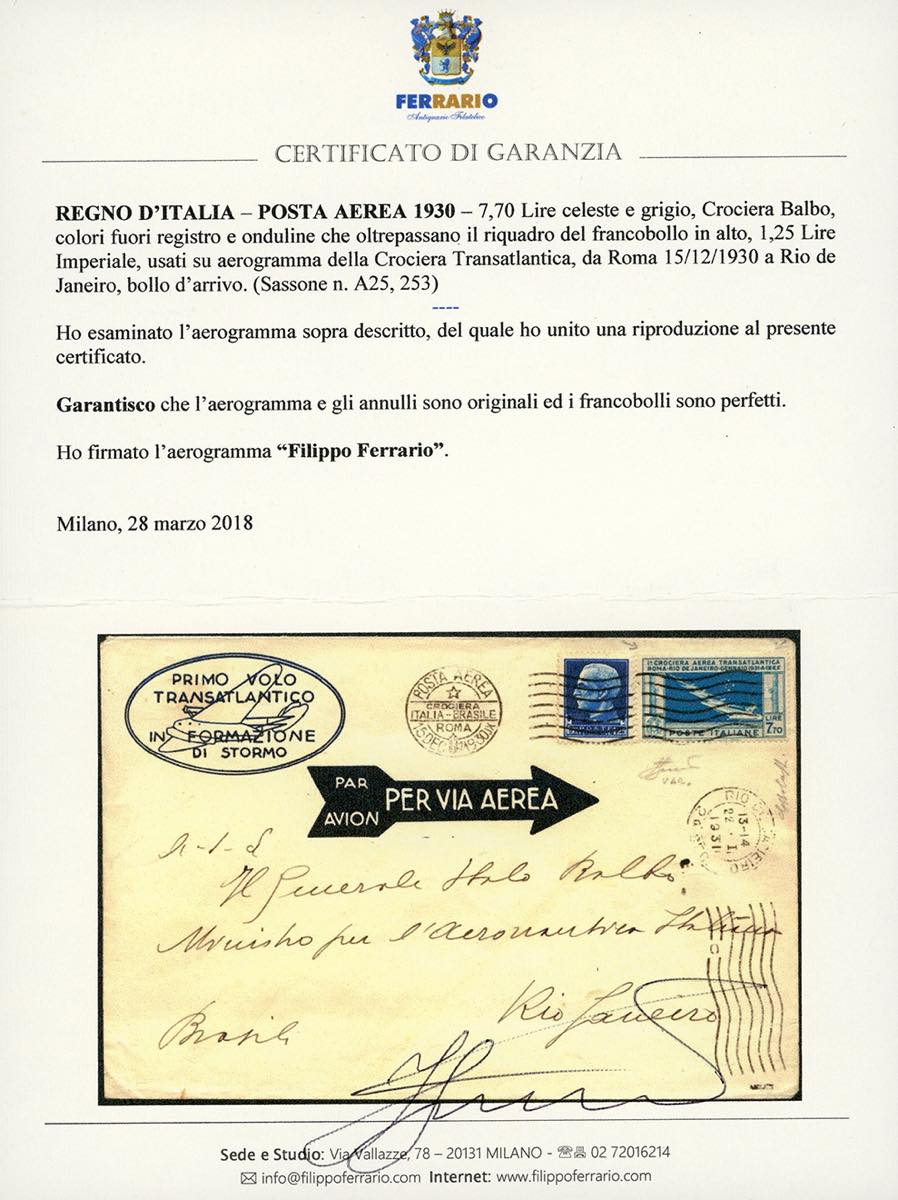 FERRARIO
Antiquario Filatelico
CERTIFICATO DI GARANZIA
REGNO D'ITALIA – POSTA AEREA 1930 – 7,70 Lire celeste e grigio, Crociera Balbo,
colori fuori registro e onduline che oltrepassano il riquadro del francobollo in alto, 1,25 Lire
Imperiale, usati su aerogramma della Crociera Transatlantica, da Roma 15/12/1930 a Rio de
Janeiro, bollo d'arrivo. (Sassone n. A25, 253)
----
Ho esaminato l'aerogramma sopra descritto, del quale ho unito una riproduzione al presente
certificato.
Garantisco che l'aerogramma e gli annulli sono originali ed i francobolli sono perfetti.
Ho firmato l'aerogramma “Filippo Ferrario”.
Milano, 28 marzo 2018
PRIMO VOLO
TRANSATLANTICO
IN FORMAZIONE
DI STORMO
POSTA AEREA
CROCIERA
ITALIA-BRASILE
ROMA
15 DEC 1930 IX
Iª CROCIERA AEREA TRANSATLANTICA
ROMA-RIO DE JANEIRO-GENNAIO 1931-A.IX E.F.
LIRE
7,70
POSTE ITALIANE
VAR.
PAR
AVION
PER VIA AEREA
RIO DE JANEIRO
13-14
22.I
1931
Il Generale Italo Balbo
Ministro per l'Aeronautica Italiana
Rio Janeiro
Brasile
Sede e Studio: Via Vallazze, 78 – 20131 MILANO - ☎ 02 72016214
✉ info@filippoferrario.com Internet: www.filippoferrario.com